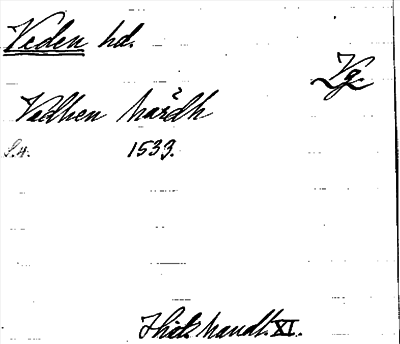 Veden hd.
Vg
Vedhen härdh
S. 4. 1533.
Hist. handl. XI.